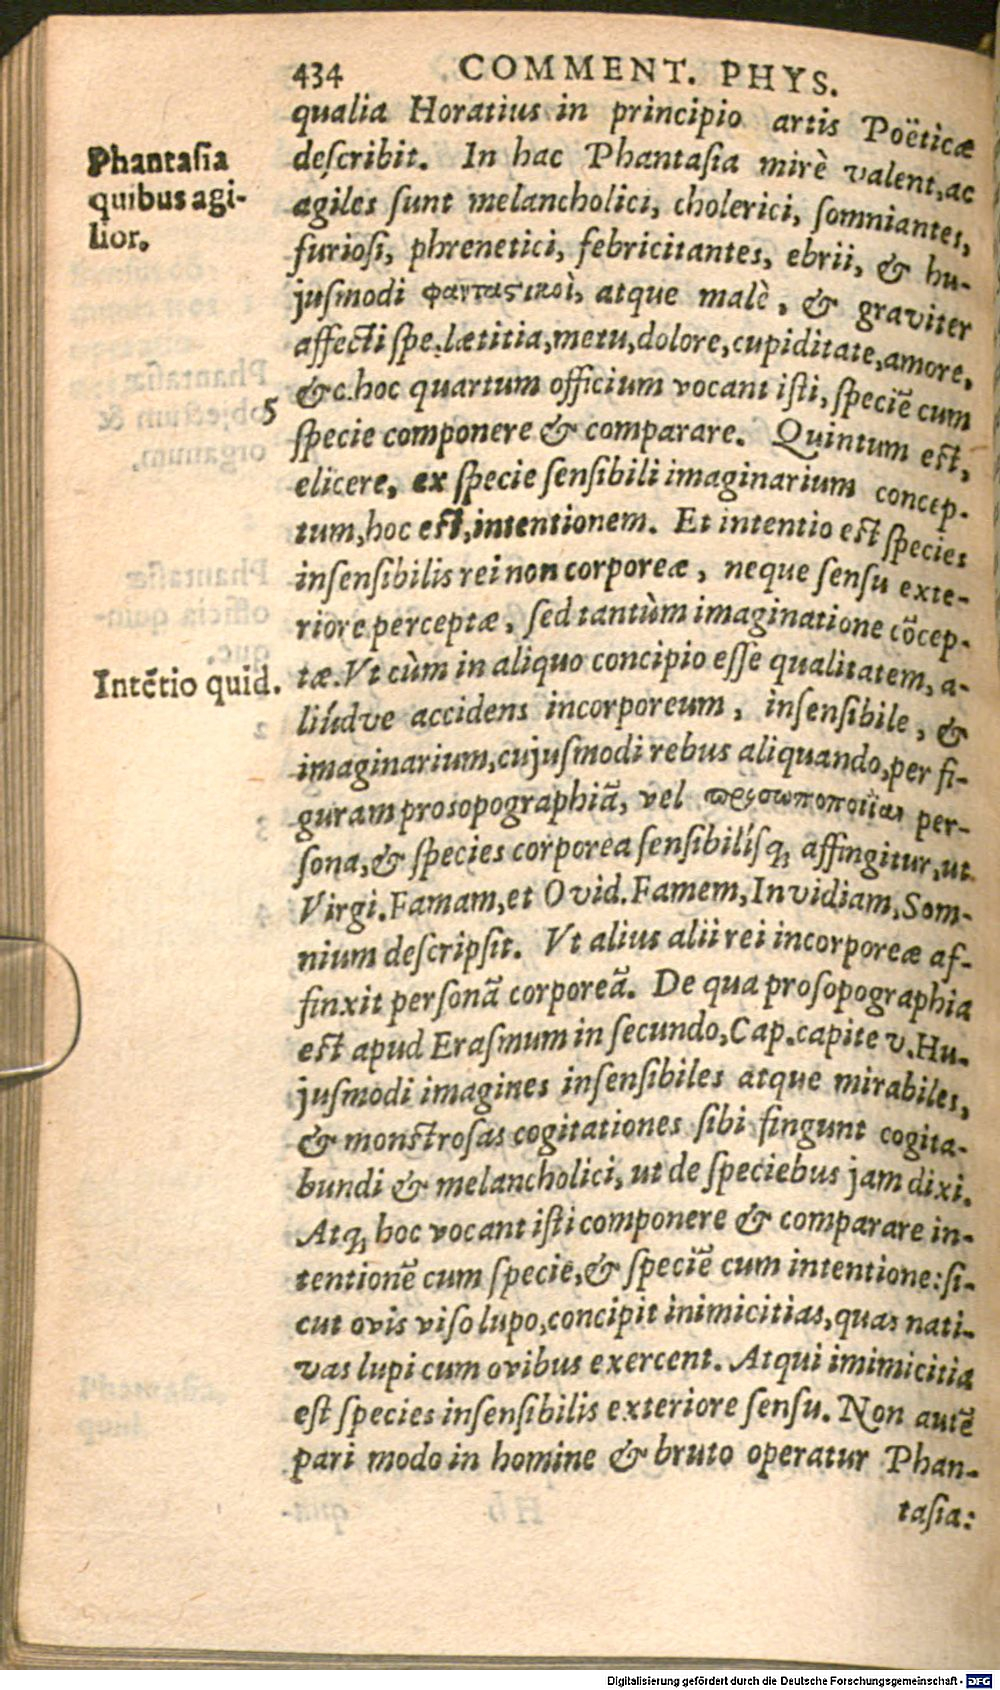 434 COMMENT. PHYS.
qualia Horatius in principio artis Poëticæ
Phantasia
quibus agi-
lior.
deſcribit. In hac Phantaſia mirè valent, ac
agiles ſunt melancholici, cholerici, ſomniantes,
furioſi, phrenetici, febricitantes, ebrii, & hu-
juſmodi φαντασικοὶ, atque malè, & graviter
affecti ſpe, lætitia, metu, dolore, cupiditate, amore,
&c. hoc quartum officium vocant iſti, ſpeciē cum
5
ſpecie componere & comparare. Quintum eſt,
elicere, ex ſpecie ſenſibili imaginarium concep-
tum, hoc eſt, intentionem. Et intentio eſt ſpecies
inſenſibilis rei non corporeæ, neque ſenſu exte-
riore perceptæ, ſed tantùm imaginatione cōcep-
Intētio quid.
tæ. Vt cùm in aliquo concipio eſſe qualitatem, a-
liúdve accidens incorporeum, inſenſibile, &
imaginarium, cujuſmodi rebus aliquando, per fi-
guram proſopographiā, vel προσωποποιΐαν per-
ſona, & ſpecies corporea ſenſibiliſq́; affingitur, ut
Virgi. Famam, et Ovid. Famem, Invidiam, Som-
nium deſcripſit. Vt alius alii rei incorporeæ af-
finxit perſonā corporeā. De qua proſopographia
eſt apud Eraſmum in ſecundo, Cap. capite v. Hu-
juſmodi imagines inſenſibiles atque mirabiles,
& monſtroſas cogitationes ſibi fingunt cogita-
bundi & melancholici, ut de ſpeciebus jam dixi.
Atq; hoc vocant iſti componere & comparare in-
tentionē cum ſpecie, & ſpeciē cum intentione: ſi-
cut ovis viſo lupo, concipit inimicitias, quas nati-
vas lupi cum ovibus exercent. Atqui imimicitia
eſt ſpecies inſenſibilis exteriore ſenſu. Non autē
pari modo in homine & bruto operatur Phan-
taſia:
Digitalisierung gefördert durch die Deutsche Forschungsgemeinschaft - DFG